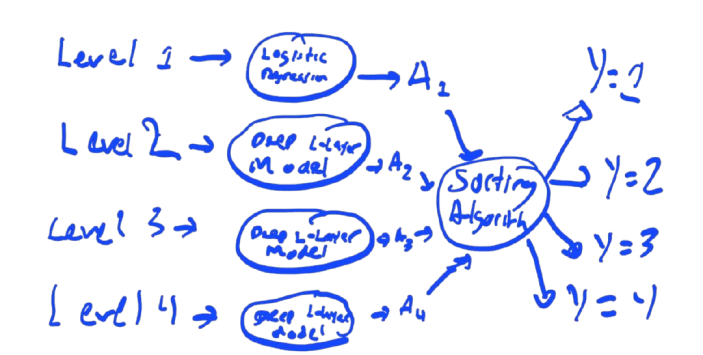 Level 1 → Logistic Regression → A1
Level 2 → Deep L-Layer Model → A2
Level 3 → Deep L-Layer Model → A3
Level 4 → Deep L-Layer Model → A4
Sorting
Algorith
Y=1
Y=2
Y=3
Y=4